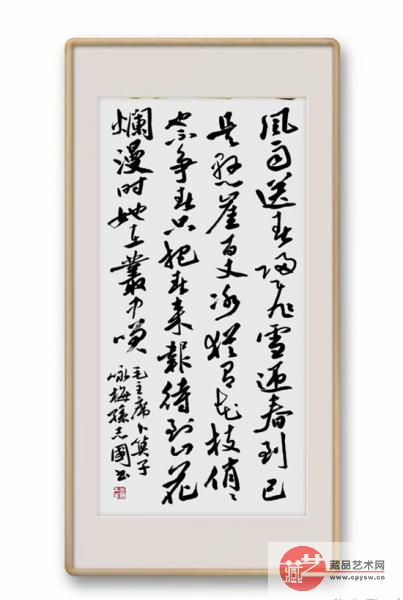 風雨送春歸飛雪迎春到已
是懸崖百丈冰猶有花枝俏々
也不争春只把春来報待到山花
爛漫時她在叢中咲
毛主席卜算子
咏梅孫志國书
藏品艺术网
www.cpysw.cn